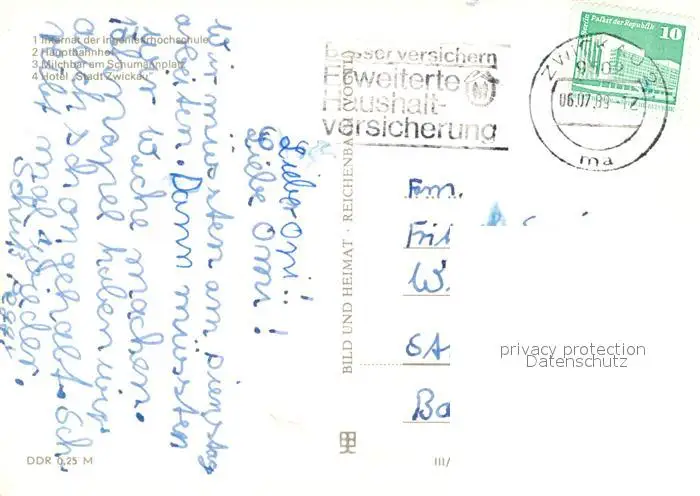 1 Internat der Ingenieurhochschule
2 Hauptbahnhof
3 Milchbar am Schumannplatz
4 Hotel „Stadt Zwickau"
Lieber Opi!
Liebe Omi!
Wir mussten am Dienstag
arbeiten. Dann mussten
wir Wache machen.
haben wir
auch schon gehabt. Sch
mal wieder.
BILD UND HEIMAT · REICHENBACH (VOGTL)
Besser versichern
Erweiterte
Haushalt-
versicherung
ZWICKAU
06.07.89-12
ma
Berlin, Palast der Republik
10
Fam.
Fri
W.
Ba
privacy protection
Datenschutz
DDR 0,25 M
III/